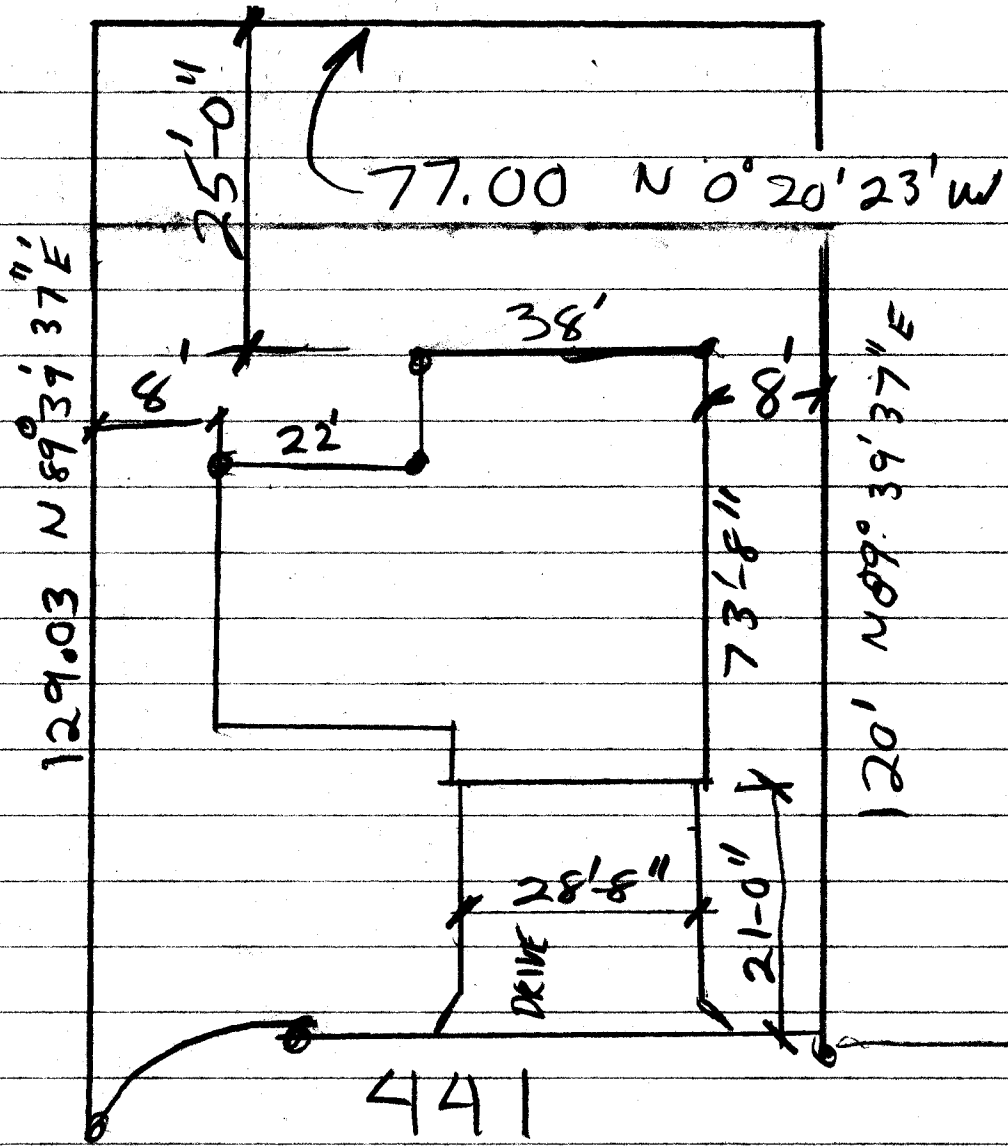 25'-0"
77.00 N 0° 20' 23' W
129.03 N 89° 39' 37" E
38'
8'
8'
22'
73'-8"
120' N 89° 39' 37" E
28'-8"
21-0"
DRIVE
441